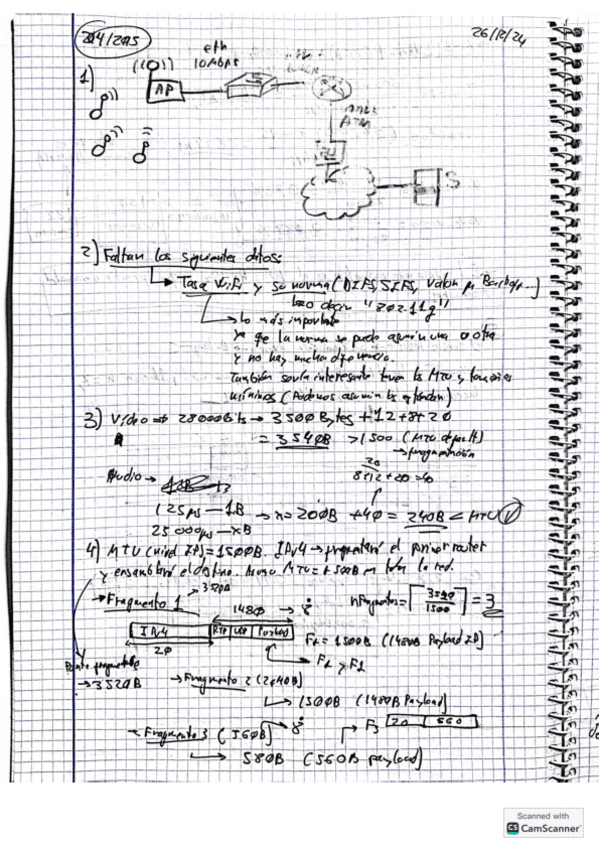 2̶0̶4/205
26/12/24
1)
eth
10MBPS
((o))
AP
ATM
S
2) Faltan los siguientes datos:
Tasa WiFi y su norma (DIFS, SIFS, valor Backoff...)
"802.11g"
Lo más importante
Ya que la norma se puede asumir una o otra
y no hay mucha diferencia.
También sería interesante tener los MTU y tamaños
mínimos (Podemos asumir los estándar)
3) Vídeo ⇒ 28000bits → 3500Bytes + 12+8+20
= 3540B > 1500 (MTU default)
→ fragmentación
Audio →
20
8+12+20=40
125μs — 1B
→ x = 200B + 40 = 240B < MTU
25000μs — xB
4) MTU (nivel IP) = 1500B. IPv4 → fragmentará el primer router
y ensamblará el destino. Asumo MTU = 1500B en toda la red.
→ Fragmento 1
3520B
1480
→ 8
nFragmentos = ⌈3540/1500⌉ = 3
IPv4 RTP UDP Payload
20
F1 = 1500B (1480B Payload IP)
Parte fragmentable
→ 3520B
→ Fragmento 2 (2040B)
→ 1500B (1480B Payload)
→ Fragmento 3 (560B)
→ 8
F3 20 560
→ 580B (560B payload)
Scanned with
CS CamScanner